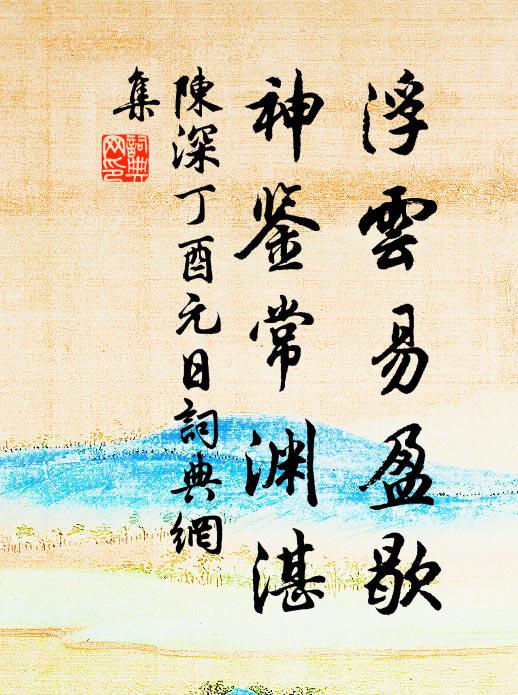 浮雲易盈歇
神鉴常渊湛
陳深丁酉元日詞典網
集
詞典网印